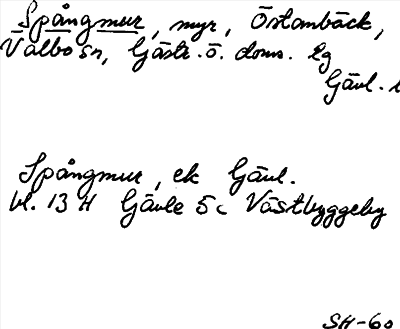 Spångmur, myr, Östanbäck,
Valbo sn, Gästr. ö. doms. lg
Gävl. l
Spångmur, ek Gävl.
bl. 13 H Gävle 5c Västbyggeby
SH-60